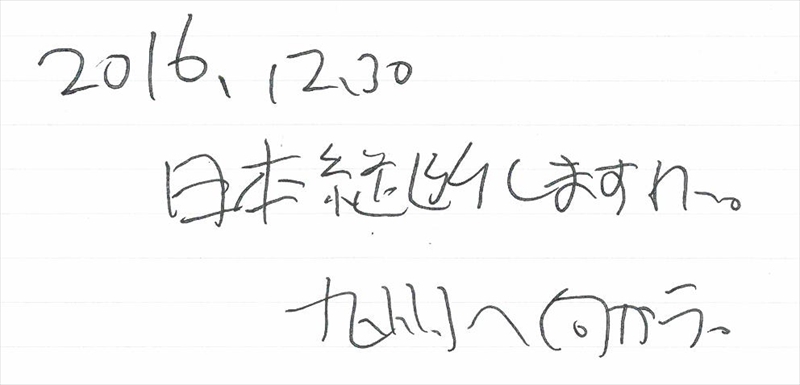 2016、12、30
日本縦断しますわ〜。
九州へ向かう。